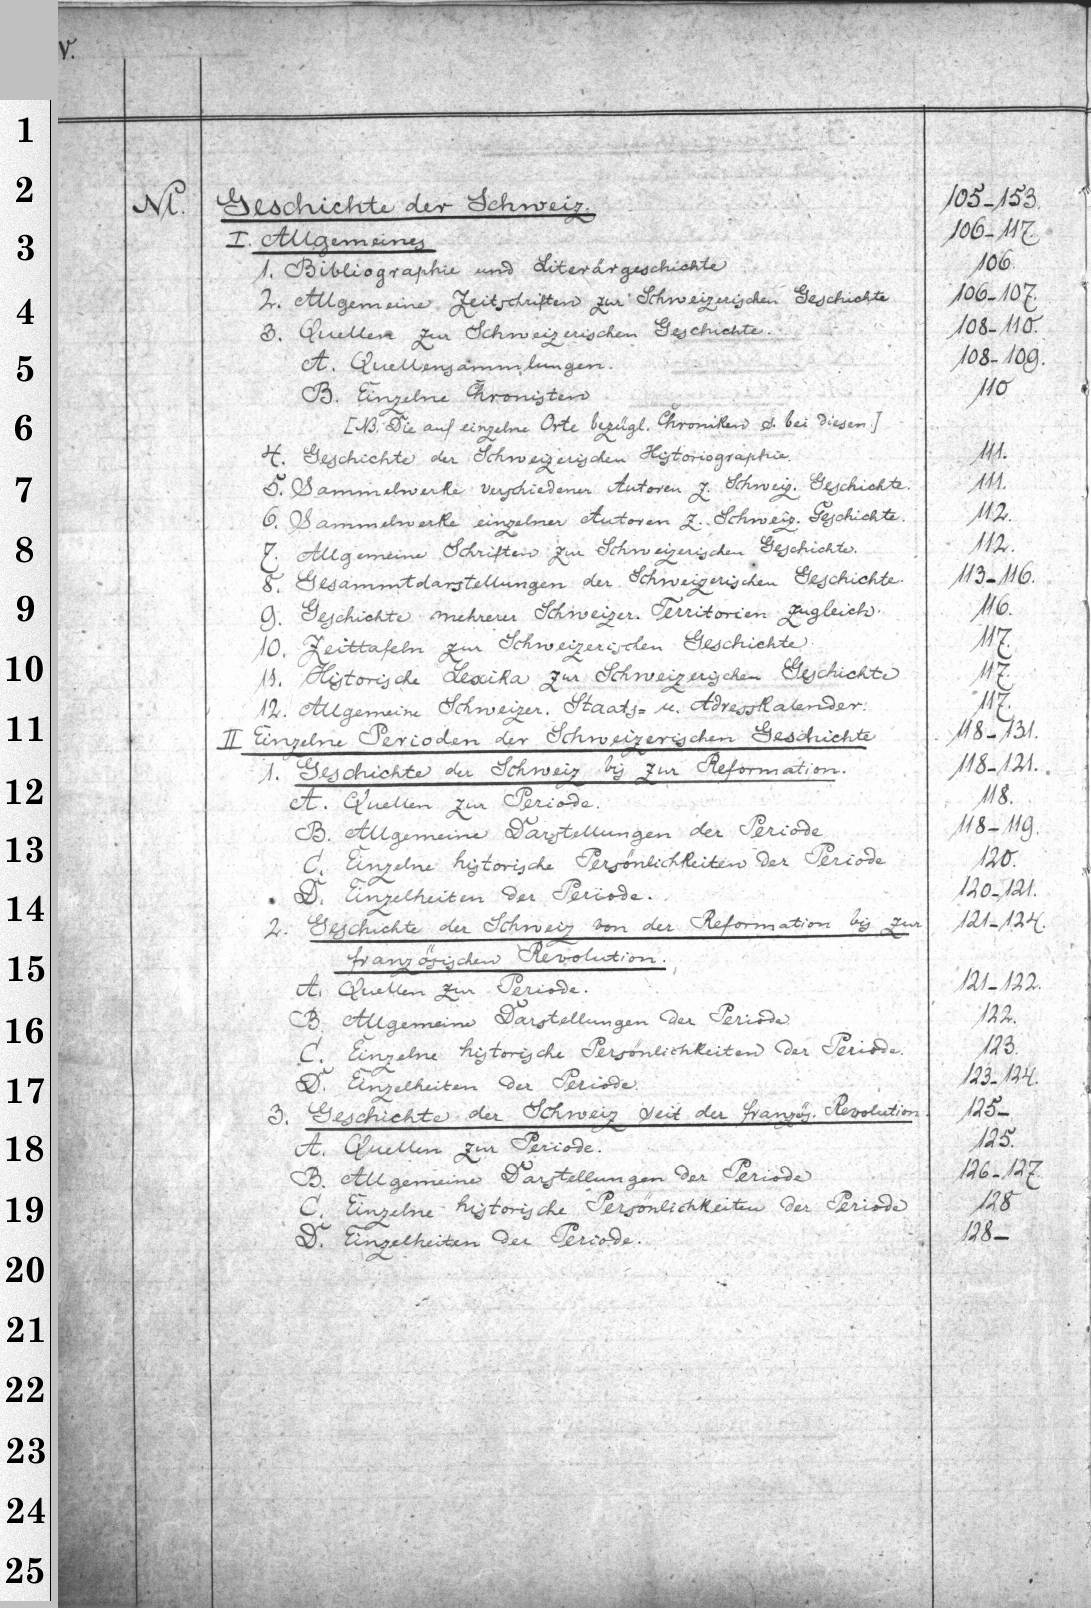 v.
1
2
3
4
5
6
7
8
9
10
11
12
13
14
15
16
17
18
19
20
21
22
23
24
25
Nl. Geschichte der Schweiz. 105-153.
I. Allgemeines 106-117
1. Bibliographie und Literärgeschichte 106
2. Allgemeine Zeitschriften zur Schweizerischen Geschichte 106-107.
3. Quellen zur Schweizerischen Geschichte. 108-110.
A. Quellensammlungen. 108-109.
B. Einzelne Chronisten 110
[NB. Die auf einzelne Orte bezügl. Chroniken s. bei diesen.]
4. Geschichte der Schweizerischen Historiographie. 111.
5. Sammelwerke verschiedener Autoren z. Schweiz. Geschichte. 111.
6. Sammelwerke einzelner Autoren z. Schweiz. Geschichte. 112.
7. Allgemeine Schriften zur Schweizerischen Geschichte. 112.
8. Gesammtdarstellungen der Schweizerischen Geschichte. 113-116.
9. Geschichte mehrerer Schweizer. Territorien zugleich. 116.
10. Zeittafeln zur Schweizerischen Geschichte 117.
11. Historische Lexika zur Schweizerischen Geschichte 117.
12. Allgemeine Schweizer. Staats= u. Adresskalender. 117.
II Einzelne Perioden der Schweizerischen Geschichte 118-131.
1. Geschichte der Schweiz bis zur Reformation. 118-121.
A. Quellen zur Periode. 118.
B. Allgemeine Darstellungen der Periode 118-119.
C. Einzelne historische Persönlichkeiten der Periode 120.
D. Einzelheiten der Periode. 120-121.
2. Geschichte der Schweiz von der Reformation bis zur 121-124.
französischen Revolution.
A. Quellen zur Periode. 121-122.
B. Allgemeine Darstellungen der Periode 122.
C. Einzelne historische Persönlichkeiten der Periode. 123.
D. Einzelheiten der Periode. 123-124.
3. Geschichte der Schweiz seit der französ. Revolution. 125-
A. Quellen zur Periode. 125.
B. Allgemeine Darstellungen der Periode 126-127
C. Einzelne historische Persönlichkeiten der Periode 128
D. Einzelheiten der Periode. 128-